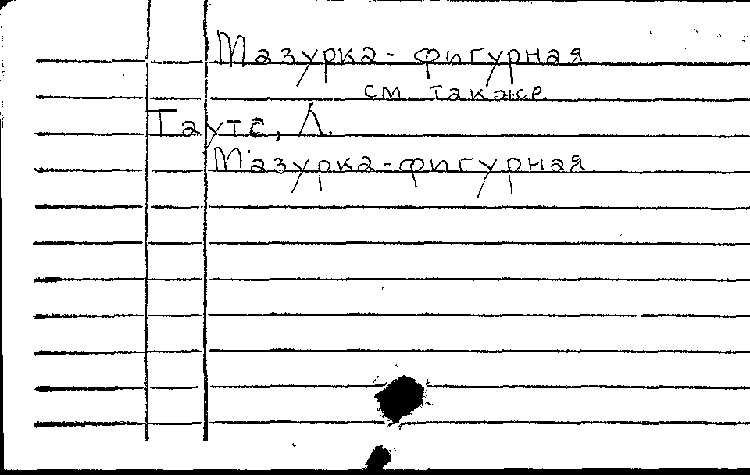 Мазурка-фигурная
см также
Гаутс, Л.
Мазурка-фигурная